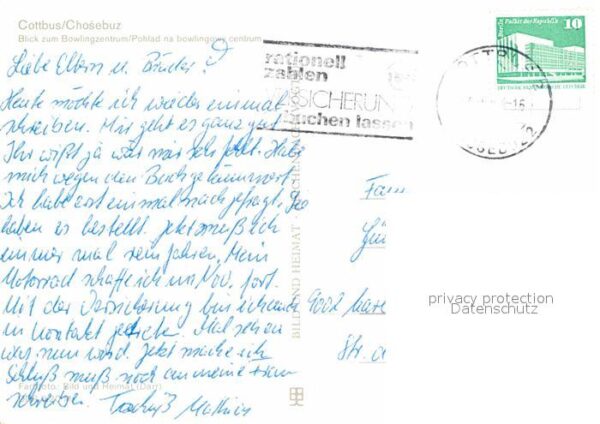 Cottbus/Chośebuz
Blick zum Bowlingzentrum/Pohlad na bowlingowy centrum
Liebe Eltern u. Brüder!
Heute möchte ich wieder einmal
schreiben. Mir geht es ganz gut
Ihr wißt ja was mir sehr fehlt. Habe
mich wegen den
Ich habe erst einmal nachgefragt. Sie
haben es bestellt. Jetzt muß ich
immer mal rein fahren. Mein
Motorrad schaffe ich im Nov. fort.
Mit der Versicherung bin ich auch
in Kontakt getreten. Mal sehen
was nun wird. Jetzt mache ich
Schluß muß noch an meine
schreiben. Tschüß Mathias
Farbfoto: Bild und Heimat
BILD UND HEIMAT
rationell
zahlen
VERSICHERUNG
buchen lassen
Berlin, Palast der Republik
10
Fam
900
Str. a
privacy protection
Datenschutz